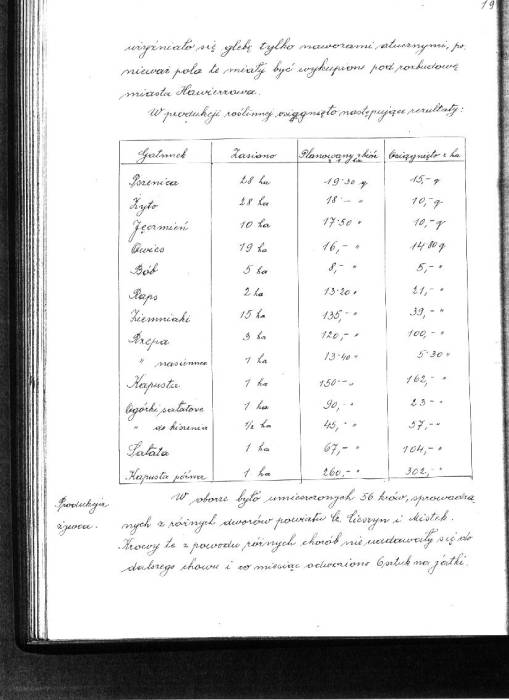 19
użyźniało się glebę tylko nawozami sztucznymi, po-
nieważ pola te miały być wykupione pod rozbudowę
miasta Hawierzowa.
W produkcji roślinnej osiągnięto następujące rezultaty:
Gatunek Zasiano Planowany zbiór z ha Osiągnięto z ha
Pszenica 28 ha 19·30 q 15,- q
Żyto 28 ha 18·- " 10,- q
Jęczmień 10 ha 17·50 " 10,- q
Owies 19 ha 16,- " 14·80 q
Bób 5 ha 8,- " 5,- "
Raps 2 ha 13·20 " 21,- "
Ziemniaki 15 ha 135,- " 39,- "
Rzepa 3 ha 120,- " 100,- "
" nasienna 1 ha 13·40 " 5·30 "
Kapusta 1 ha 150·- " 162,- "
Ogórki sałatove 1 ha 90,- " 23- "
" do kiszenia 1/2 ha 45,- " 37,- "
Sałata 1 ha 67,- " 104,- "
Kapusta późna 1 ha 260,- " 302,- "
Produkcja żywca.
W oborze było umieszczonych 56 krów, sprowadza
nych z różnych dworów powiatu Cz. Cieszyn i Mistek.
Krowy te z powodu różnych chorób nie nadawały się do
dalszego chowu i co miesiąc odwożono 6 sztuk na jatki.